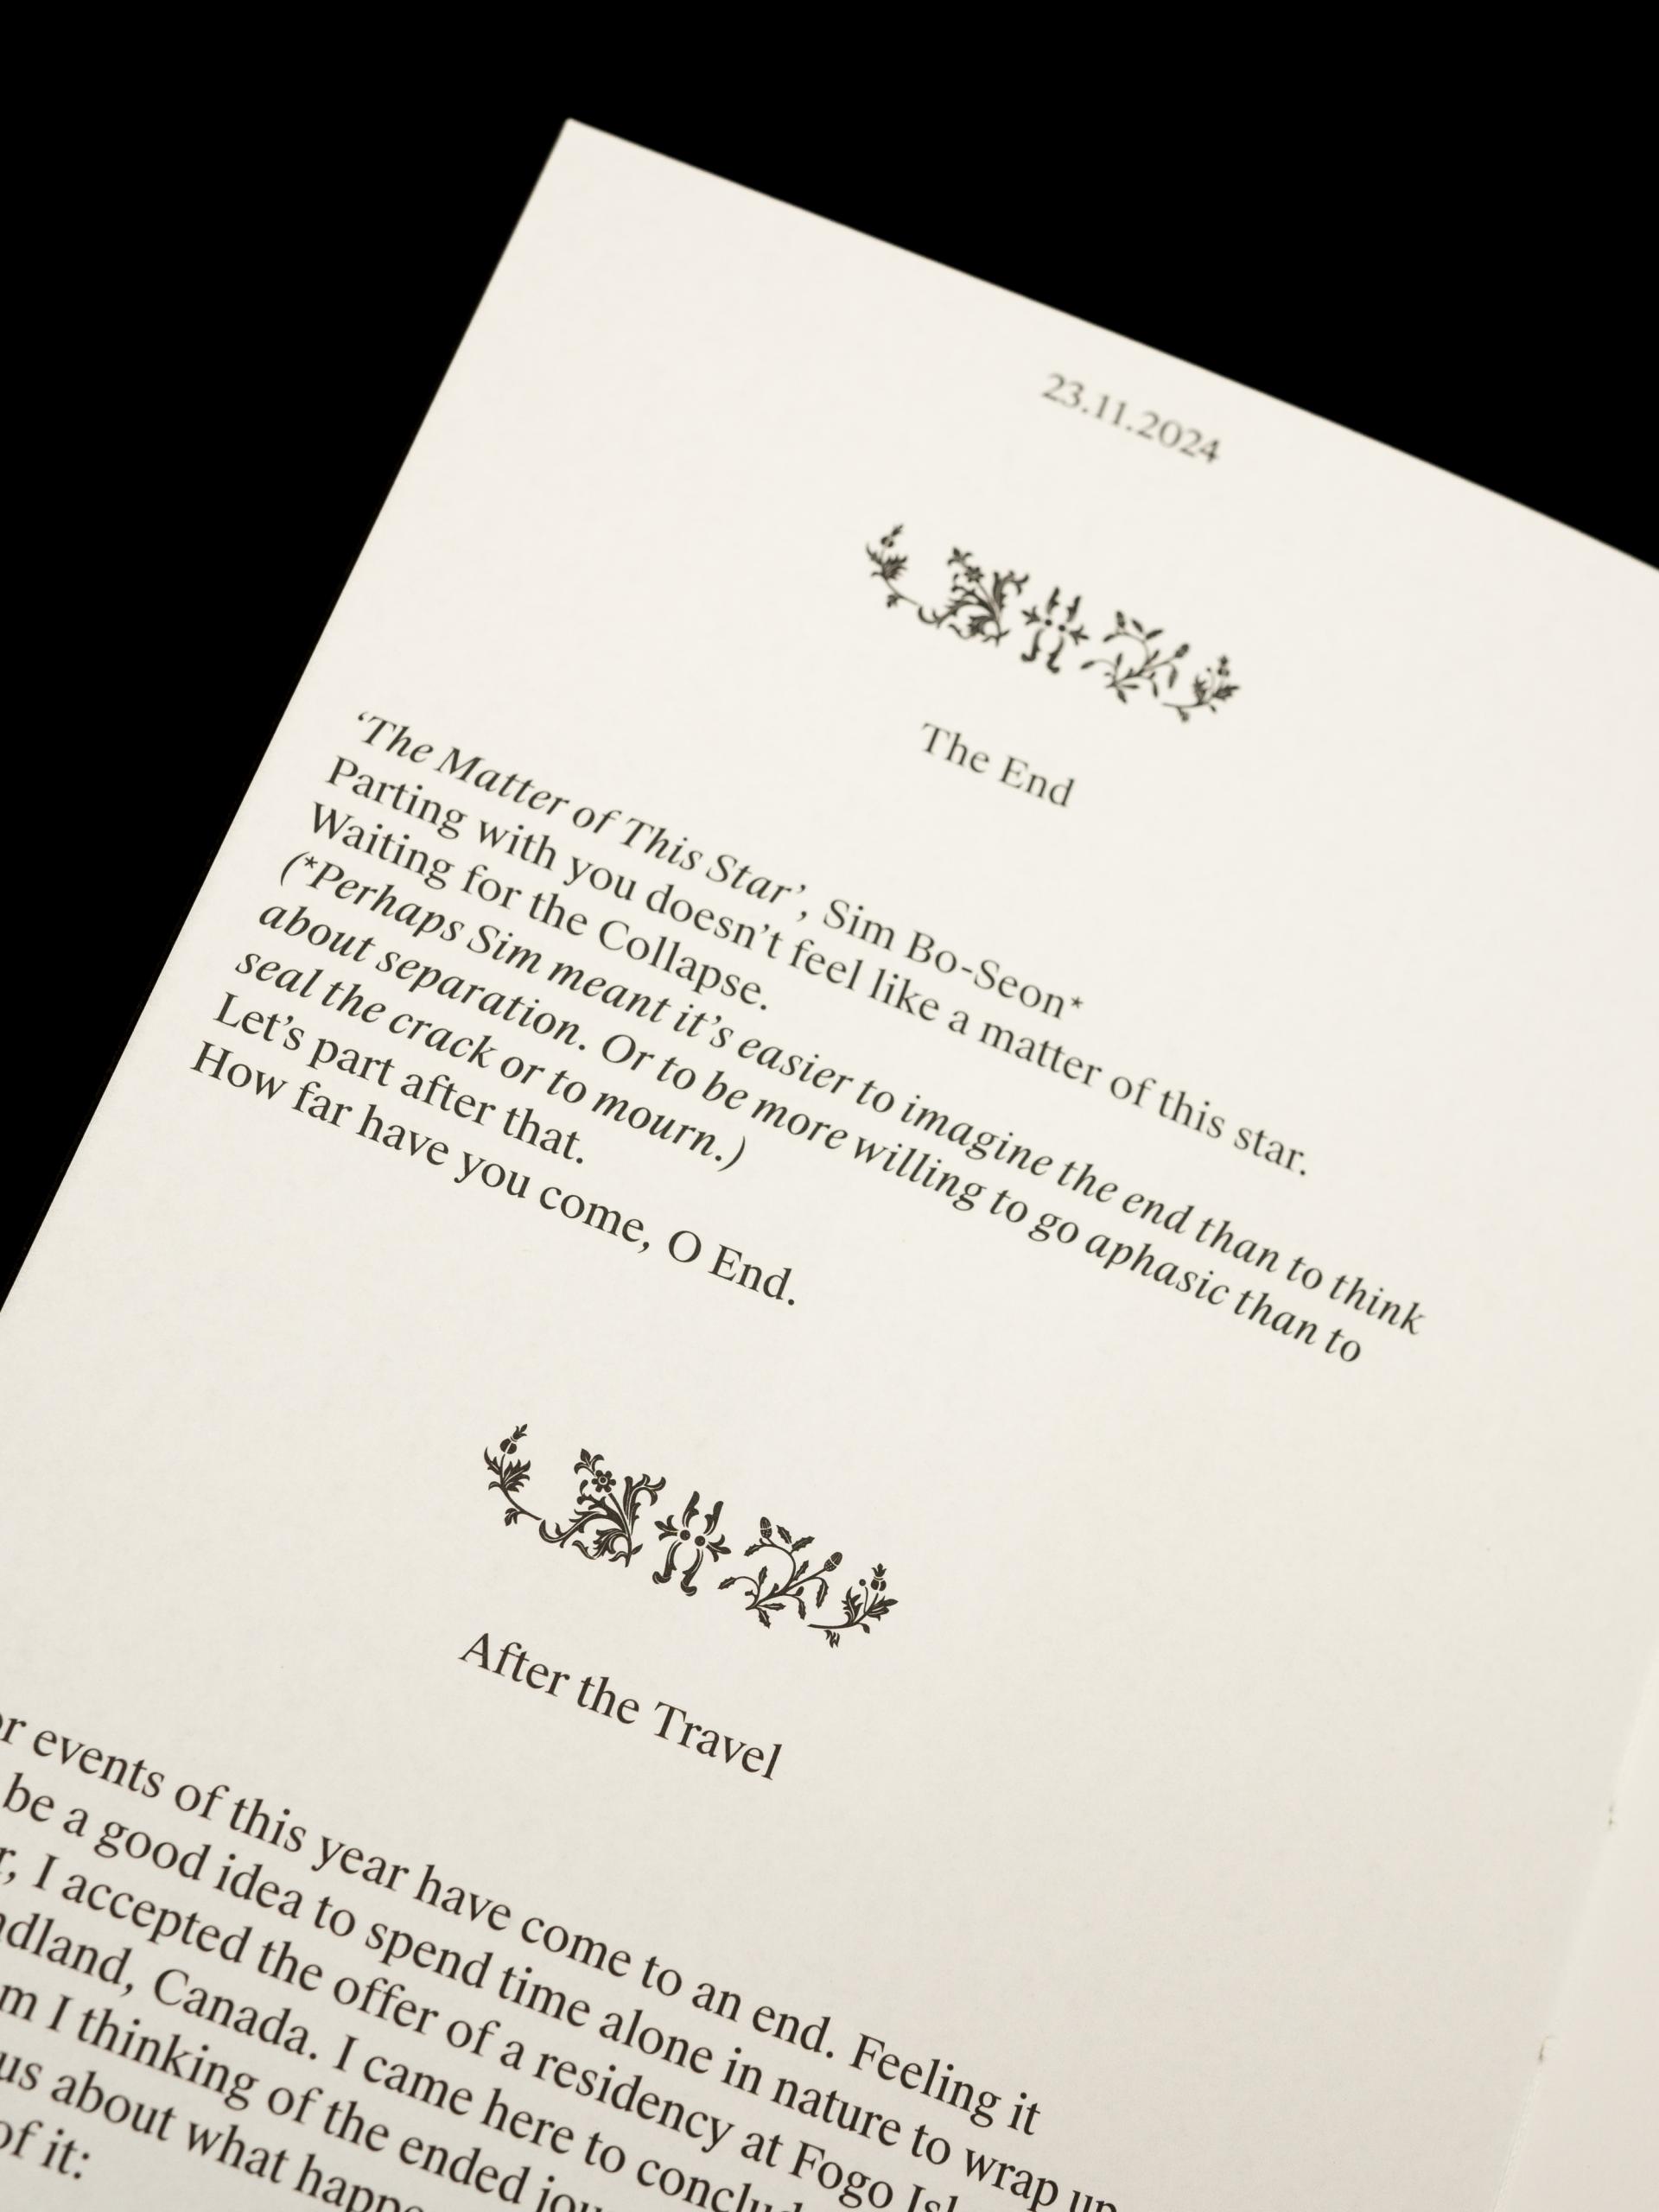 23.11.2024
The End
‘The Matter of This Star’, Sim Bo-Seon*
Parting with you doesn’t feel like a matter of this star.
Waiting for the Collapse.
(*Perhaps Sim meant it’s easier to imagine the end than to think
about separation. Or to be more willing to go aphasic than to
seal the crack or to mourn.)
Let’s part after that.
How far have you come, O End.
After the Travel
events of this year have come to an end. Feeling it
be a good idea to spend time alone in nature to wrap up
I accepted the offer of a residency at Fogo
Canada. I came here to
I thinking of the ended
about what
of it: